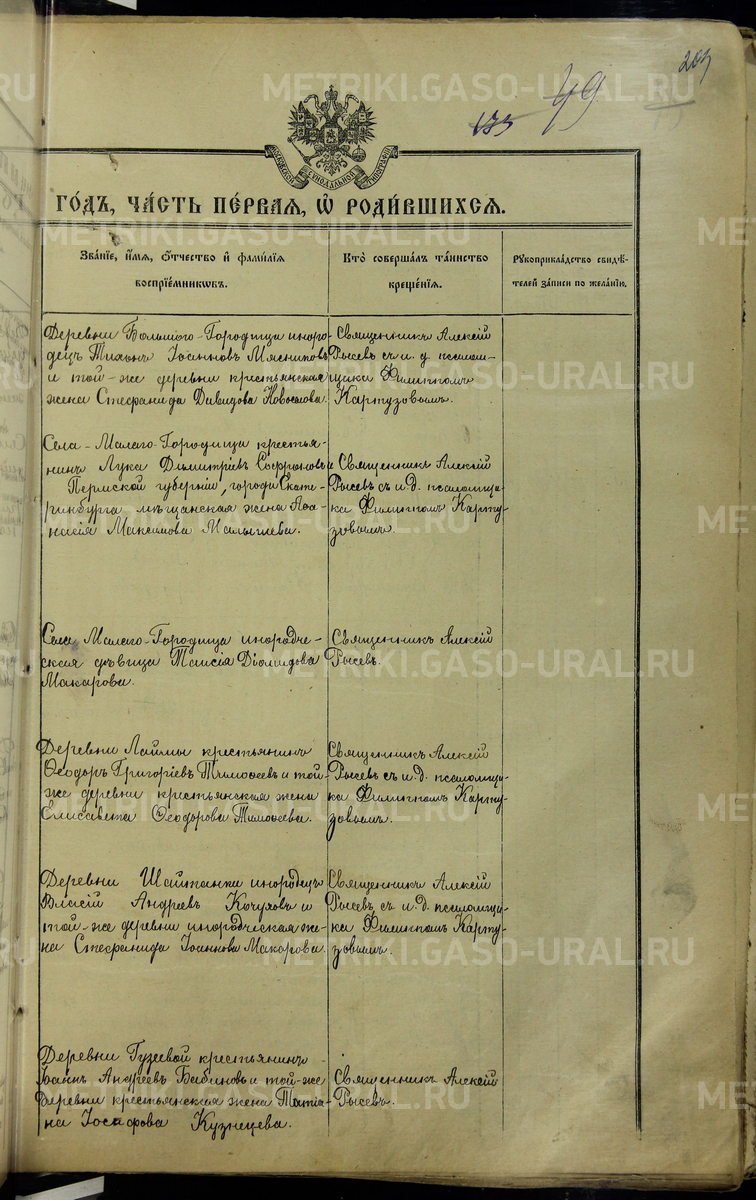 49
175
МОСКОВСКОЙ СѴНОДАЛЬНОЙ ТИПОГРАФІИ
ГО́ДЪ, ЧА́СТЬ ПЕ́РВАЯ, Ѡ҆ РОДИ́ВШИХСЯ.
Зва́ніе, и҆́мя, ѻ҆́тчество и҆ фами́лія
воспріе́мниковъ.
Кто̀ соверша́лъ та́инство
креще́нія.
Рукоприкла́дство свидѣ́-
телей за́писи по жела́нію.
Деревни Большого-Городища инородецъ
Тихонъ Іоанновъ Мясниковъ
и той-же деревни крестьянская
жена Стефанида Давидова Новоселова.
Священникъ Алексій
Рысевъ съ и. д. псалом-
щика Филиппомъ
Картузовымъ.
Села-Малаго-Городища крестья-
нинъ Лука Димитріевъ Софроновъ и
Пермской губерніи, города Екате-
ринбурга мѣщанская жена Аѳа-
насія Максимова Малышева.
Священникъ Алексій
Рысевъ съ и. д. псаломщи-
ка Филиппомъ Карту-
зовымъ.
Села Малаго-Городища инородче-
ская дѣвица Таисія Діомидова
Макарова.
Священникъ Алексій
Рысевъ.
Деревни Лаймы крестьянинъ
Ѳеодоръ Григоріевъ Тимоѳеевъ и той-
же деревни крестьянская жена
Елисавета Ѳеодорова Тимоѳеева.
Священникъ Алексій
Рысевъ съ и. д. псаломщи-
ка Филиппомъ Карту-
зовымъ.
Деревни Шайтанки инородецъ
Власій Андреевъ Кочуховъ и
той-же деревни инородческая же-
на Стефанида Іоаннова Макарова.
Священникъ Алексій
Рысевъ съ и. д. псаломщи-
ка Филиппомъ Карту-
зовымъ.
Деревни Гузеевой крестьянинъ -
Іоаннъ Андреевъ Бабиновъ и той-же
деревни крестьянская жена Татія-
на Іосафова Кузнецева.
Священникъ Алексій
Рысевъ.
METRIKI.GASO-URAL.RU